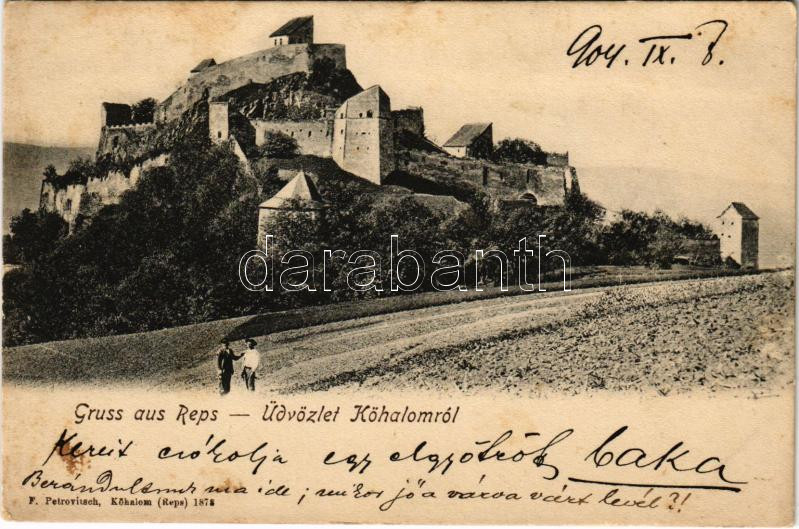 904. IX. 8.
darabanth.com
Gruss aus Reps — Üdvözlet Köhalomról
csókolja egy elgyötrött baka
Berándultunk ma ide; mikor jő a várva várt levél?!
F. Petrovitsch, Köhalom (Reps) 1878